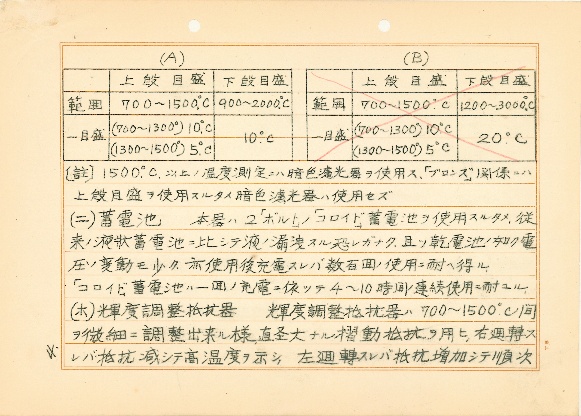 (A)
上段目盛 下段目盛
範囲 700～1500°C 900～2000°C
一目盛 (700～1300°) 10°C 10°C
(1300～1500) 5°C
(B)
上段目盛 下段目盛
範囲 700～1500°C 1200～3000°C
一目盛 (700～1300°) 10°C 20°C
(1300～1500) 5°C
〔註〕 1500°C 以上ノ温度測定ニハ暗色濾光器ヲ使用ス、「ブロンズ」関係ニハ
上段目盛ヲ使用スルタメ暗色濾光器ハ使用セズ
(ニ) 蓄電池 本器ハ2「ボルト」ノ「コロイド」蓄電池ヲ使用スルタメ、従
来ノ液状蓄電池ニ比シテ液ノ漏洩スル恐レガナク、且ツ乾電池ノ如ク電
圧ノ変動モ少ク、亦使用後充電スレバ数百回ノ使用ニ耐ヘ得ル
「コロイド」蓄電池ハ一回ノ充電ニ依ッテ 4～10時間連続使用ニ耐ユル
(ホ) 輝度調整抵抗器 輝度調整抵抗器ハ 700～1500°Cノ間
ヲ微細ニ調整出来ル様、直径大ナル摺動抵抗ヲ用ヒ、右廻轉ス
レバ抵抗減シテ高温度ヲ示シ、左廻轉スレバ抵抗増加シテ順次